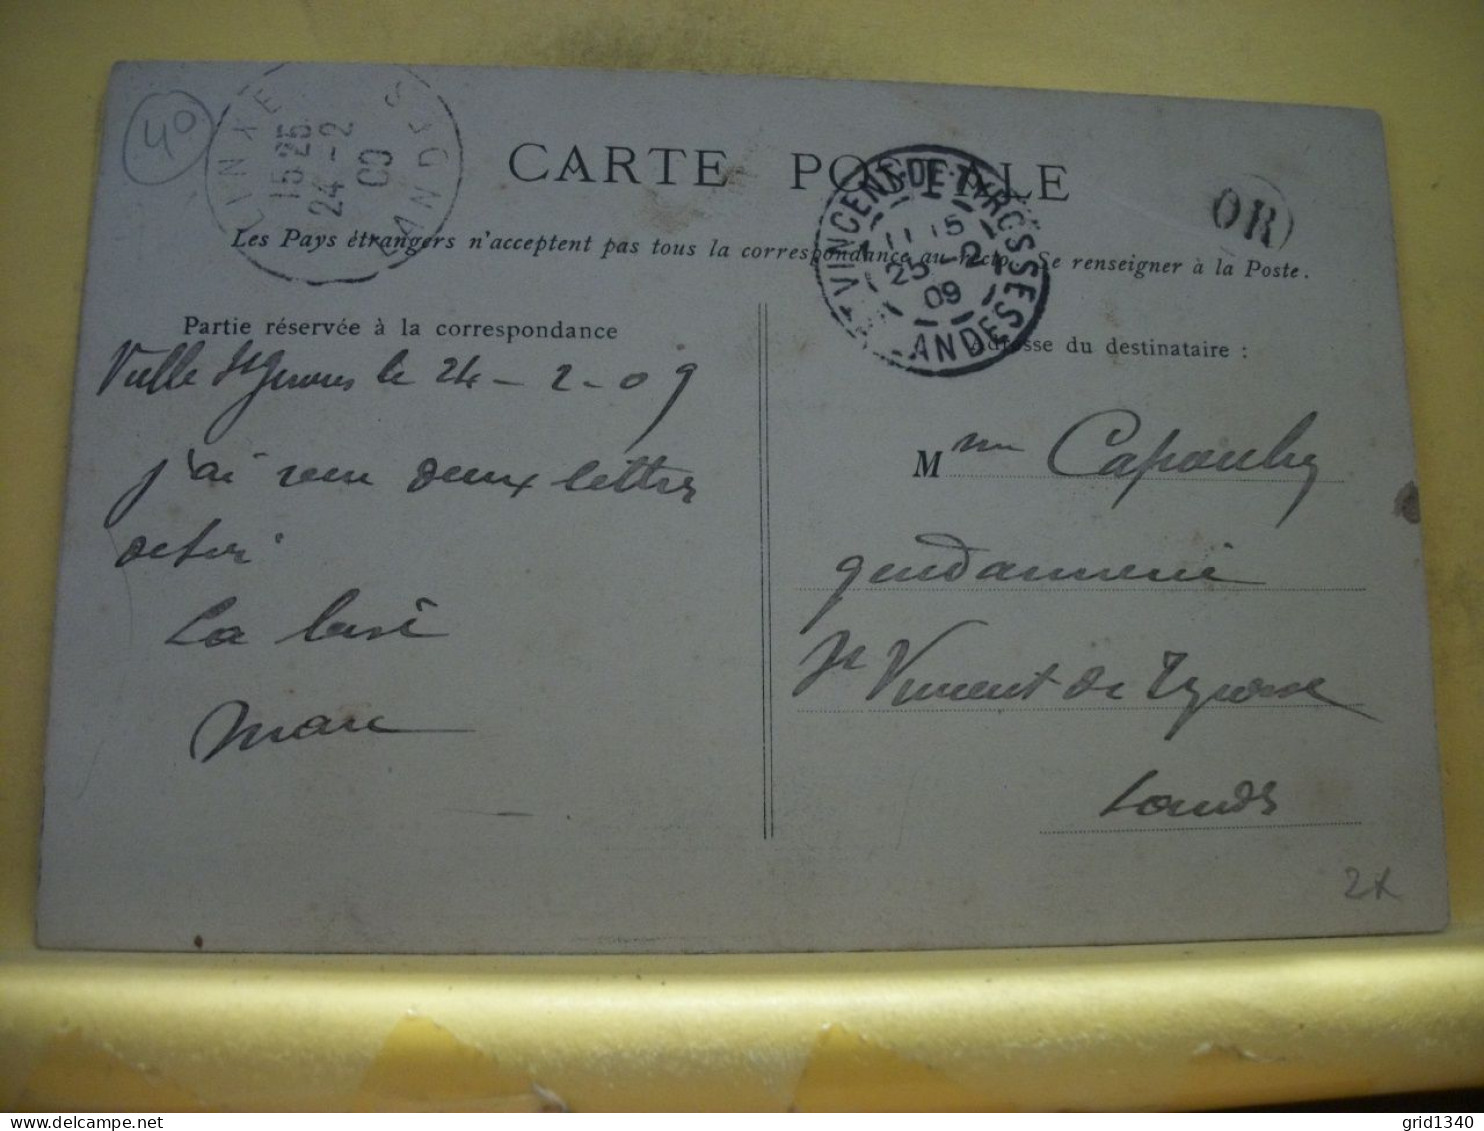 40
LINXE LANDES
15 25
24 -2
09
CARTE POSTALE
ST VINCENT-DE-TYROSSE
11 15
25 -2
09
LANDES
OR
Les Pays étrangers n'acceptent pas tous la correspondance au recto. Se renseigner à la Poste.
Partie réservée à la correspondance
Adresse du destinataire :
Vielle St Girons le 24 - 2 - 09
j'ai deux lettres
La
Marc
Mme
gendarmerie
St Vincent de Tyrosse
Landes
2x
grid1340